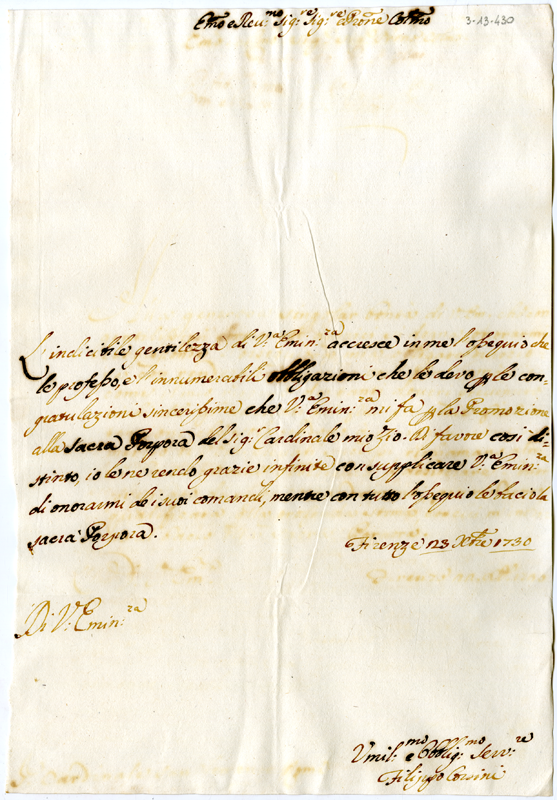 Emo e Reu:mo Sig:re Sig:re e Prone Colmo
3-13-430
L'indicibile gentilezza di V:a Emin:za accresce in me l'ossequio che
le professo, e l'innumerabili obbligazioni che le devo p le con-
gratulazioni sincerissime che V:a Emin:za mi fa p la Promozione
alla sacra Porpora del Sig:r Cardinale mio Zio. Di favore così di-
stinto, io le ne rendo grazie infinite con supplicare V:a Emin:za
di onorarmi de i suoi comandi, mentre con tutto l'ossequio le bacio la
sacra Porpora.
Firenze 23 Xbre 1730
Di V:a Emin:za
Vmil:mo e Obblig:mo Serv:re
Filippo Corsini